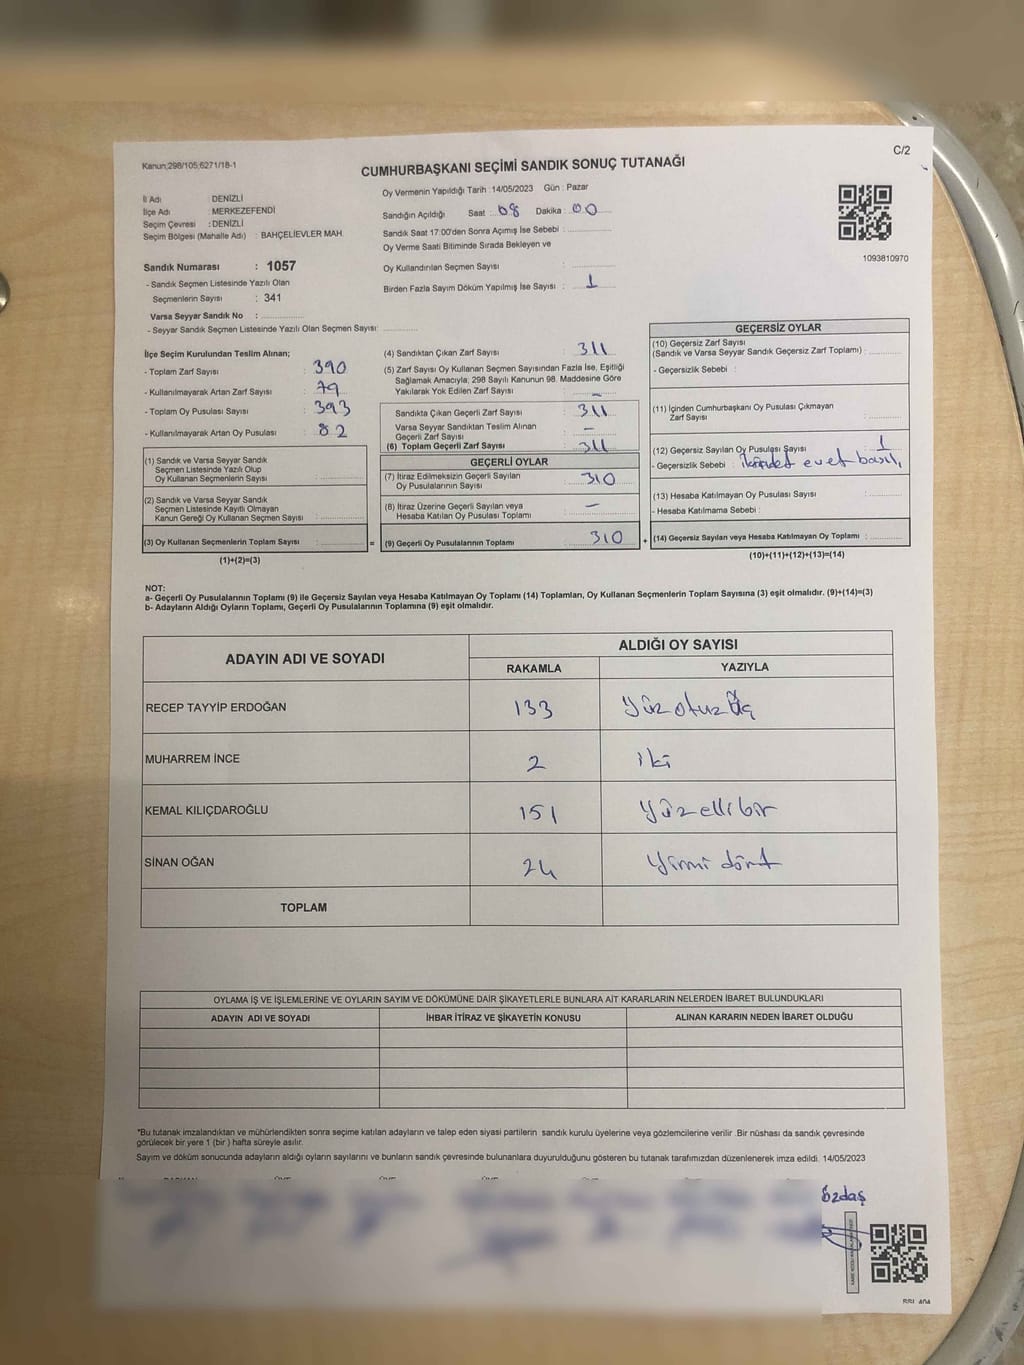 Kanun;298/105;6271/18-1
C/2
CUMHURBAŞKANI SEÇİMİ SANDIK SONUÇ TUTANAĞI
İl Adı : DENİZLİ
İlçe Adı : MERKEZEFENDİ
Seçim Çevresi : DENİZLİ
Seçim Bölgesi (Mahalle Adı) : BAHÇELİEVLER MAH.
Oy Vermenin Yapıldığı Tarih : 14/05/2023 Gün : Pazar
Sandığın Açıldığı Saat : 08 Dakika : 00
Sandık Saat 17:00'den Sonra Açımış İse Sebebi :
Oy Verme Saati Bitiminde Sırada Bekleyen ve
Oy Kullandırılan Seçmen Sayısı :
Birden Fazla Sayım Döküm Yapılmış İse Sayısı : 1
1093810970
Sandık Numarası : 1057
- Sandık Seçmen Listesinde Yazılı Olan
Seçmenlerin Sayısı : 341
Varsa Seyyar Sandık No :
- Seyyar Sandık Seçmen Listesinde Yazılı Olan Seçmen Sayısı:
İlçe Seçim Kurulundan Teslim Alınan;
- Toplam Zarf Sayısı : 390
- Kullanılmayarak Artan Zarf Sayısı : 79
- Toplam Oy Pusulası Sayısı : 393
- Kullanılmayarak Artan Oy Pusulası : 82
(1) Sandık ve Varsa Seyyar Sandık
Seçmen Listesinde Yazılı Olup
Oy Kullanan Seçmenlerin Sayısı :
(2) Sandık ve Varsa Seyyar Sandık
Seçmen Listesinde Kayıtlı Olmayan
Kanun Gereği Oy Kullanan Seçmen Sayısı :
(3) Oy Kullanan Seçmenlerin Toplam Sayısı : =
(1)+(2)=(3)
(4) Sandıktan Çıkan Zarf Sayısı : 311
(5) Zarf Sayısı Oy Kullanan Seçmen Sayısından Fazla İse, Eşitliği
Sağlamak Amacıyla, 298 Sayılı Kanunun 98. Maddesine Göre
Yakılarak Yok Edilen Zarf Sayısı : -
Sandıkta Çıkan Geçerli Zarf Sayısı : 311
Varsa Seyyar Sandıktan Teslim Alınan
Geçerli Zarf Sayısı : -
(6) Toplam Geçerli Zarf Sayısı : 311
GEÇERLİ OYLAR
(7) İtiraz Edilmeksizin Geçerli Sayılan
Oy Pusulalarının Sayısı : 310
(8) İtiraz Üzerine Geçerli Sayılan veya
Hesaba Katılan Oy Pusulası Toplamı : -
(9) Geçerli Oy Pusulalarının Toplamı : 310 +
GEÇERSİZ OYLAR
(10) Geçersiz Zarf Sayısı
(Sandık ve Varsa Seyyar Sandık Geçersiz Zarf Toplamı) :
- Geçersizlik Sebebi :
(11) İçinden Cumhurbaşkanı Oy Pusulası Çıkmayan
Zarf Sayısı :
(12) Geçersiz Sayılan Oy Pusulası Sayısı : 1
- Geçersizlik Sebebi : evet basılı
(13) Hesaba Katılmayan Oy Pusulası Sayısı :
- Hesaba Katılmama Sebebi :
(14) Geçersiz Sayılan veya Hesaba Katılmayan Oy Toplamı :
(10)+(11)+(12)+(13)=(14)
NOT:
a- Geçerli Oy Pusulalarının Toplamı (9) ile Geçersiz Sayılan veya Hesaba Katılmayan Oy Toplamı (14) Toplamları, Oy Kullanan Seçmenlerin Toplam Sayısına (3) eşit olmalıdır. (9)+(14)=(3)
b- Adayların Aldığı Oyların Toplamı, Geçerli Oy Pusulalarının Toplamına (9) eşit olmalıdır.
ADAYIN ADI VE SOYADI
ALDIĞI OY SAYISI
RAKAMLA YAZIYLA
RECEP TAYYİP ERDOĞAN 133 Yüz otuz Üç
MUHARREM İNCE 2 iki
KEMAL KILIÇDAROĞLU 151 Yüz elli bir
SİNAN OĞAN 24 Yirmi dört
TOPLAM
OYLAMA İŞ VE İŞLEMLERİNE VE OYLARIN SAYIM VE DÖKÜMÜNE DAİR ŞİKAYETLERLE BUNLARA AİT KARARLARIN NELERDEN İBARET BULUNDUKLARI
ADAYIN ADI VE SOYADI İHBAR İTİRAZ VE ŞİKAYETİN KONUSU ALINAN KARARIN NEDEN İBARET OLDUĞU
*Bu tutanak imzalandıktan ve mühürlendikten sonra seçime katılan adayların ve talep eden siyasi partilerin sandık kurulu üyelerine veya gözlemcilerine verilir .Bir nüshası da sandık çevresinde
görülecek bir yere 1 (bir ) hafta süreyle asılır.
Sayım ve döküm sonucunda adayların aldığı oyların sayılarını ve bunların sandık çevresinde bulunanlara duyurulduğunu gösteren bu tutanak tarafımızdan düzenlenerek imza edildi. 14/05/2023
Özdaş